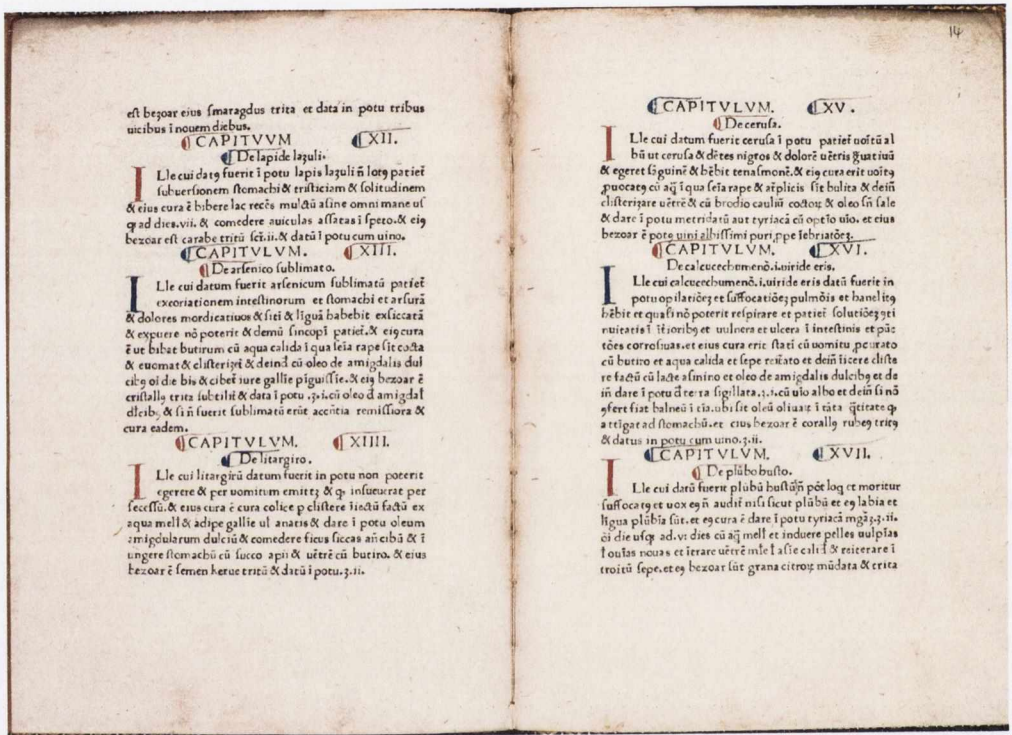 est bezoar eius smaragdus trita et data in potu tribus
uicibus ī nouem diebus.
CAPITVVM XII.
De lapide lazuli.
ILle cui datꝰ fuerit ī potu lapis lazuli ñ lotꝰ patieṫ
subuersionem stomachi & tristiciam & solitudinem
& eius cura ē bibere lac recēs mulctū asine omni mane us
qꝫ ad dies.vii. & comedere auiculas assatas ī speto. & eiꝰ
bezoar est carabe tritū scr̄.ii. & datū ī potu cum uino.
CAPITVLVM. XIII.
De arsenico sublimato.
ILle cui datum fuerit arsenicum sublimatū patieṫ
excoriationem intestinorum et stomachi et arsurā
& dolores mordicatiuos & siti & līguā habebit exsiccatā
& expuere nō poterit & demū sincopī patieṫ. & eiꝰ cura
ē ut bibat butirum cū aqua calida ī qua seīa rape sīt cocta
& euomat & clisterizeṫ & deind̄ cū oleo de amigdalis dul
cibꝰ oī die bis & cibeṫ iure gallīe pīguissīe. & eiꝰ bezoar ē
cristallꝰ trita subtiliṫ & data ī potu .ʒ.i. cū oleo đ amigdaƚ
dīcibꝰ & si ñ fuerit sublimatū erūt accn̄tia remissiora &
cura eadem.
CAPITVLVM. XIIII.
De litargiro.
ILle cui litargirū datum fuerit in potu non poterit
egerere & per uomitum emittꝫ & qꝫ insueuerat per
secessū. & eius cura ē cura colice p clistere īiectū factū ex
aqua melƚ & adipe gallīe uƚ anatis & dare ī potu oleum
amigdalarum dulciū & comedere ficus siccas añ cibū & ī
ungere stomachū cū succo apii & uētrē cū butiro. & eius
bezoar ē semen herue tritū & datū ī potu.ʒ.ii.
14
CAPITVLVM. XV.
De cerusa.
ILle cui datum fuerit cerusa ī potu patieṫ uoītū al
bū ut cerusa & dētes nigros & dolorē uētris g̃uatiuū
& egeret sg̃uinē & hēbit tenasmonē. & eiꝰ cura erit uoitꝰ
ꝓuocatꝰ cū aq̄ ī qua seīa rape & aṫplicis sīt bulita & deiñ
clisterizare uētrē & cū brodio cauliū coctoꝝ & oleo sñ sale
& dare ī potu metridatū aut tyriacā cū optīo uīo. et eius
bezoar ē pote uini albissimi puri ꝓpe īebriatōeꝫ.
CAPITVLVM. XVI.
De calcucechumenō.i.uiride eris.
ILle cui calcucechumenō.i.uiride eris datū fuerit in
potu opilatiōeꝫ et suffocatiōeꝫ pulmōis et hanelitꝰ
hēbit et quasi nō poterit respirare et patieṫ solutiōeꝫ ꝯti
nuitatis ī īṫioribꝰ et uulnera et ulcera ī intestinis et pūc
tōes corrosiuas. et eius cura erit statī cū uomitu ꝓcurato
cū butiro et aqua calida et sepe reiṫato et deiñ īicere cliste
re factū cū lacte asinino et oleo de amigdalis dulcibꝰ et de
iñ dare ī potu đ terra sigillata.ʒ.i. cū uīo albo et deiñ si nō
ꝯfert fiat balneū ī tīa. ubi sit oleū oliuaꝝ ī tāta q̄titate qꝫ
attīgat ad stomachū. et eius bezoar ē corallꝰ rubeꝰ tritꝰ
& datus in potu cum uino.ʒ.ii.
CAPITVLVM. XVII.
De plūbo busto.
ILle cui datū fuerit plūbū bustū ñ pōt loq̄ et moritur
suffocatꝰ et uox eiꝰ ñ audiṫ nisi sicut plūbū et eiꝰ labia et
līgua plūbīa sūt. et eiꝰ cura ē dare ī potu tyriacā mgāʒ.ʒ.ii.
oī die usqꝫ ad.vi dies cū aq̄ melƚ et induere pelles uulpīas
ƚ ouīas nouas et iterare uētrē
troitū sepe. et eiꝰ bezoar sūt grana citroꝝ mūdata & trita